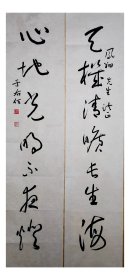 天機清曠長生海
先生
心地光明不夜燈
于右任